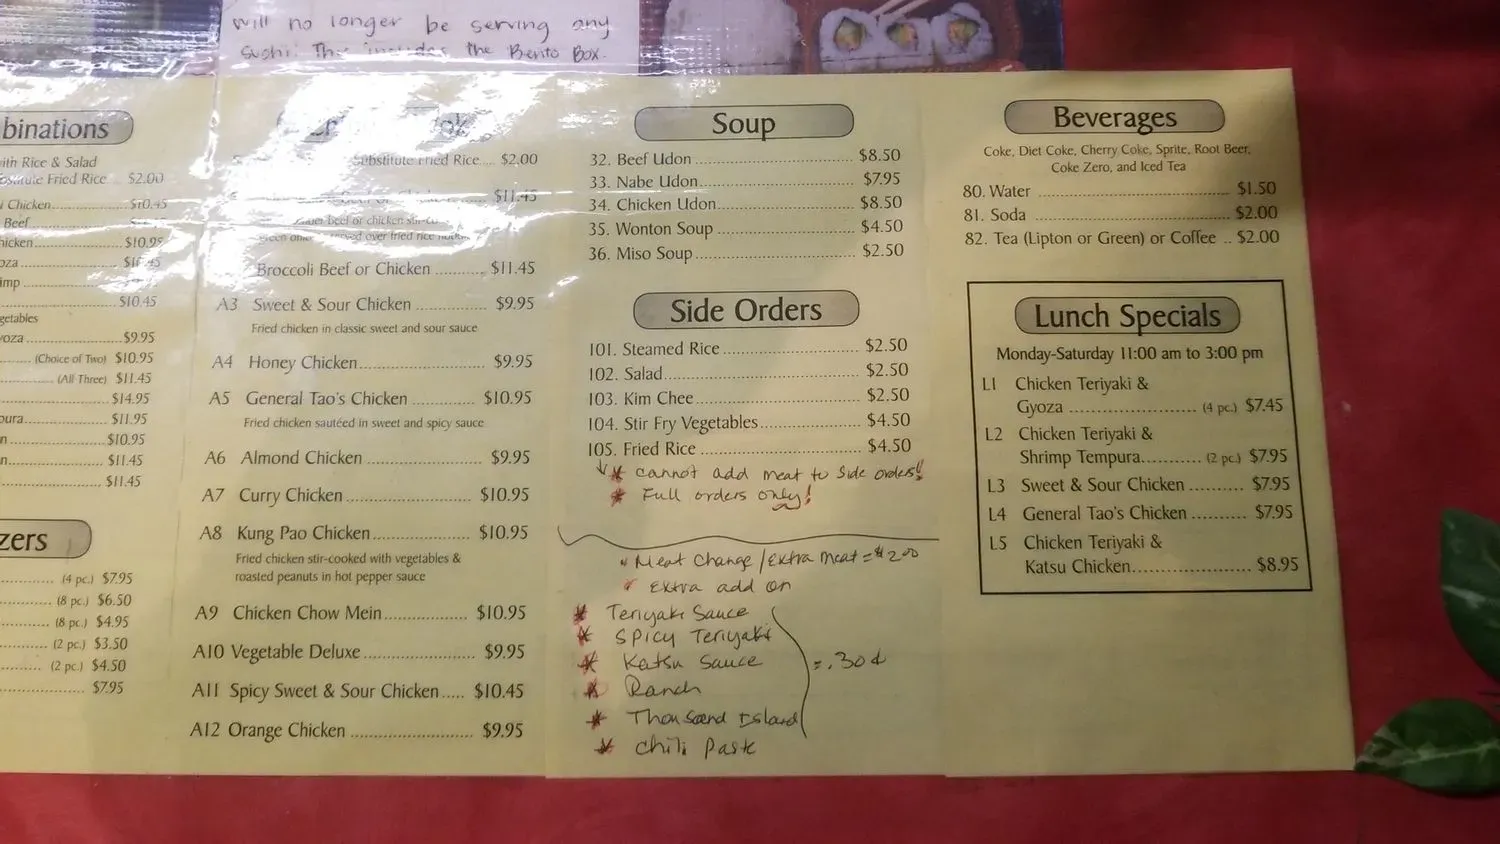 will no longer be serving any
sushi. This includes the Bento Box.
binations
ith Rice & Salad
Fried Rice $2.00
Chicken $10.45
Beef
hicken $10.95
oza
imp
$10.45
getables
yoza $9.95
(Choice of Two) $10.95
(All Three) $11.45
$14.95
pura $11.95
n $10.95
n $11.45
$11.45
zers
(4 pc.) $7.95
(8 pc.) $6.50
(8 pc.) $4.95
(2 pc.) $3.50
(2 pc.) $4.50
$7.95
Substitute Fried Rice.... $2.00
$11.45
beef or chicken
served over fried rice
Broccoli Beef or Chicken .......... $11.45
A3 Sweet & Sour Chicken .............. $9.95
Fried chicken in classic sweet and sour sauce
A4 Honey Chicken........................... $9.95
A5 General Tao's Chicken ............. $10.95
Fried chicken sautéed in sweet and spicy sauce
A6 Almond Chicken ....................... $9.95
A7 Curry Chicken......................... $10.95
A8 Kung Pao Chicken ................... $10.95
Fried chicken stir-cooked with vegetables &
roasted peanuts in hot pepper sauce
A9 Chicken Chow Mein ................ $10.95
A10 Vegetable Deluxe ..................... $9.95
A11 Spicy Sweet & Sour Chicken ..... $10.45
A12 Orange Chicken ....................... $9.95
Soup
32. Beef Udon .............................. $8.50
33. Nabe Udon............................. $7.95
34. Chicken Udon......................... $8.50
35. Wonton Soup ......................... $4.50
36. Miso Soup.............................. $2.50
Side Orders
101. Steamed Rice ......................... $2.50
102. Salad..................................... $2.50
103. Kim Chee .............................. $2.50
104. Stir Fry Vegetables................... $4.50
105. Fried Rice .............................. $4.50
* cannot add meat to side orders!
* Full orders only!
* Meat Change/Extra meat = $2.00
* Extra add on
* Teriyaki Sauce
* Spicy Teriyaki
* Katsu Sauce = .30¢
* Ranch
* Thousand Island
* Chili Paste
Beverages
Coke, Diet Coke, Cherry Coke, Sprite, Root Beer,
Coke Zero, and Iced Tea
80. Water .................................... $1.50
81. Soda ..................................... $2.00
82. Tea (Lipton or Green) or Coffee .. $2.00
Lunch Specials
Monday-Saturday 11:00 am to 3:00 pm
L1 Chicken Teriyaki &
Gyoza ........................ (4 pc.) $7.45
L2 Chicken Teriyaki &
Shrimp Tempura........... (2 pc.) $7.95
L3 Sweet & Sour Chicken .......... $7.95
L4 General Tao's Chicken .......... $7.95
L5 Chicken Teriyaki &
Katsu Chicken...................... $8.95